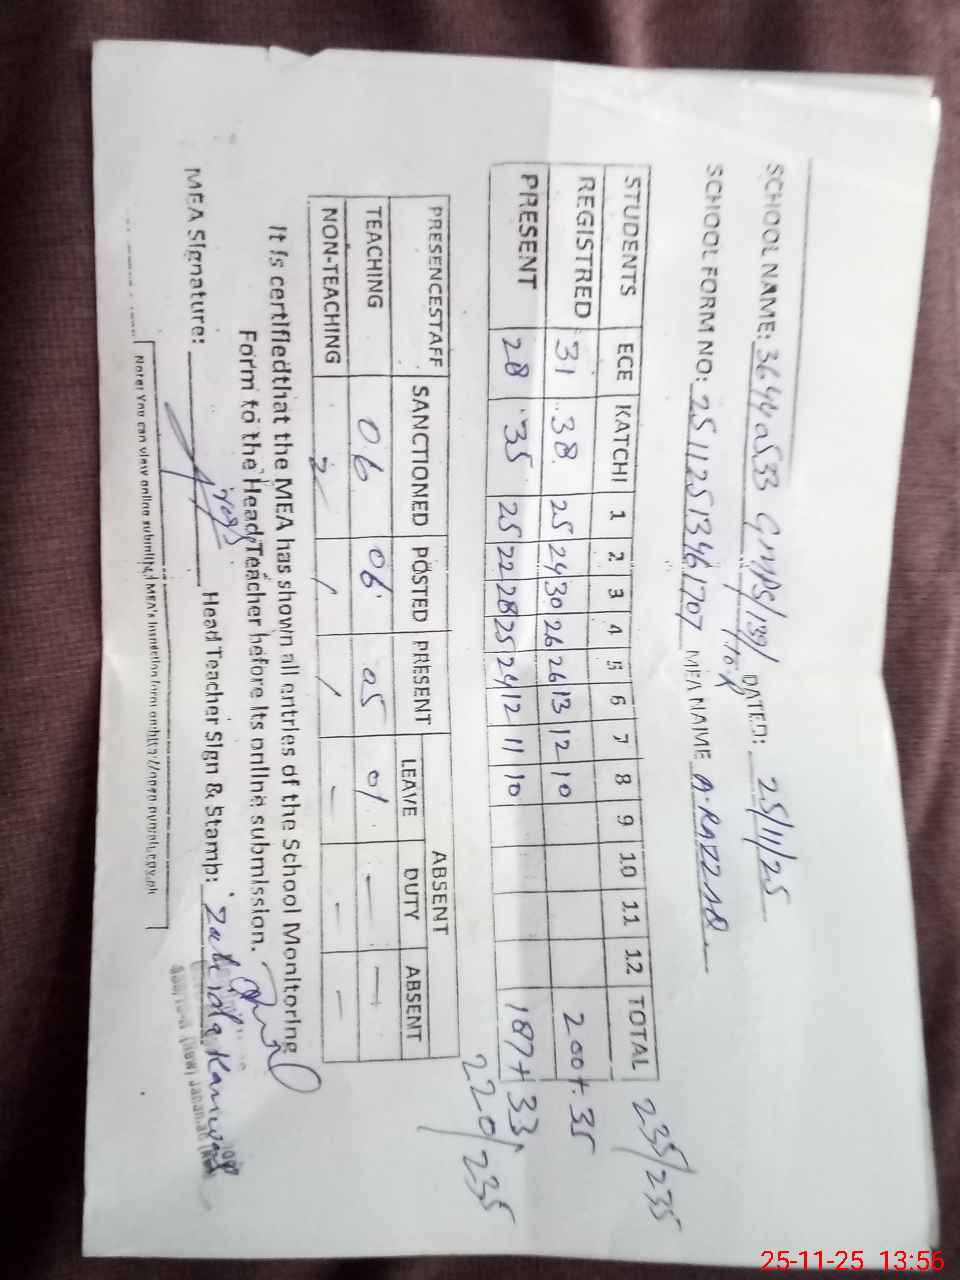 SCHOOL NAME: 36440533 GMPS/139/ DATED: 25/11/25
/10-R
SCHOOL FORM NO: 25112513461707 MEA NAME A-RAZZAQ
235/235
STUDENTS ECE KATCHI 1 2 3 4 5 6 7 8 9 10 11 12 TOTAL
REGISTRED 31 38 25 24 30 26 26 13 12 10 200+35
PRESENT 28 35 25 22 28 25 24 12 11 10 187+33
220/235
PRESENCESTAFF SANCTIONED POSTED PRESENT ABSENT
LEAVE DUTY ABSENT
TEACHING 06 06 05 01 — —
NON-TEACHING / / — — —
It is certifiedthat the MEA has shown all entries of the School Monitoring
Form to the Head Teacher before its online submission.
MEA Signature: Head Teacher Sign & Stamp: Zahida Kanwal
Note: You can view online submitted MEA's inspection form on
25-11-25 13:56